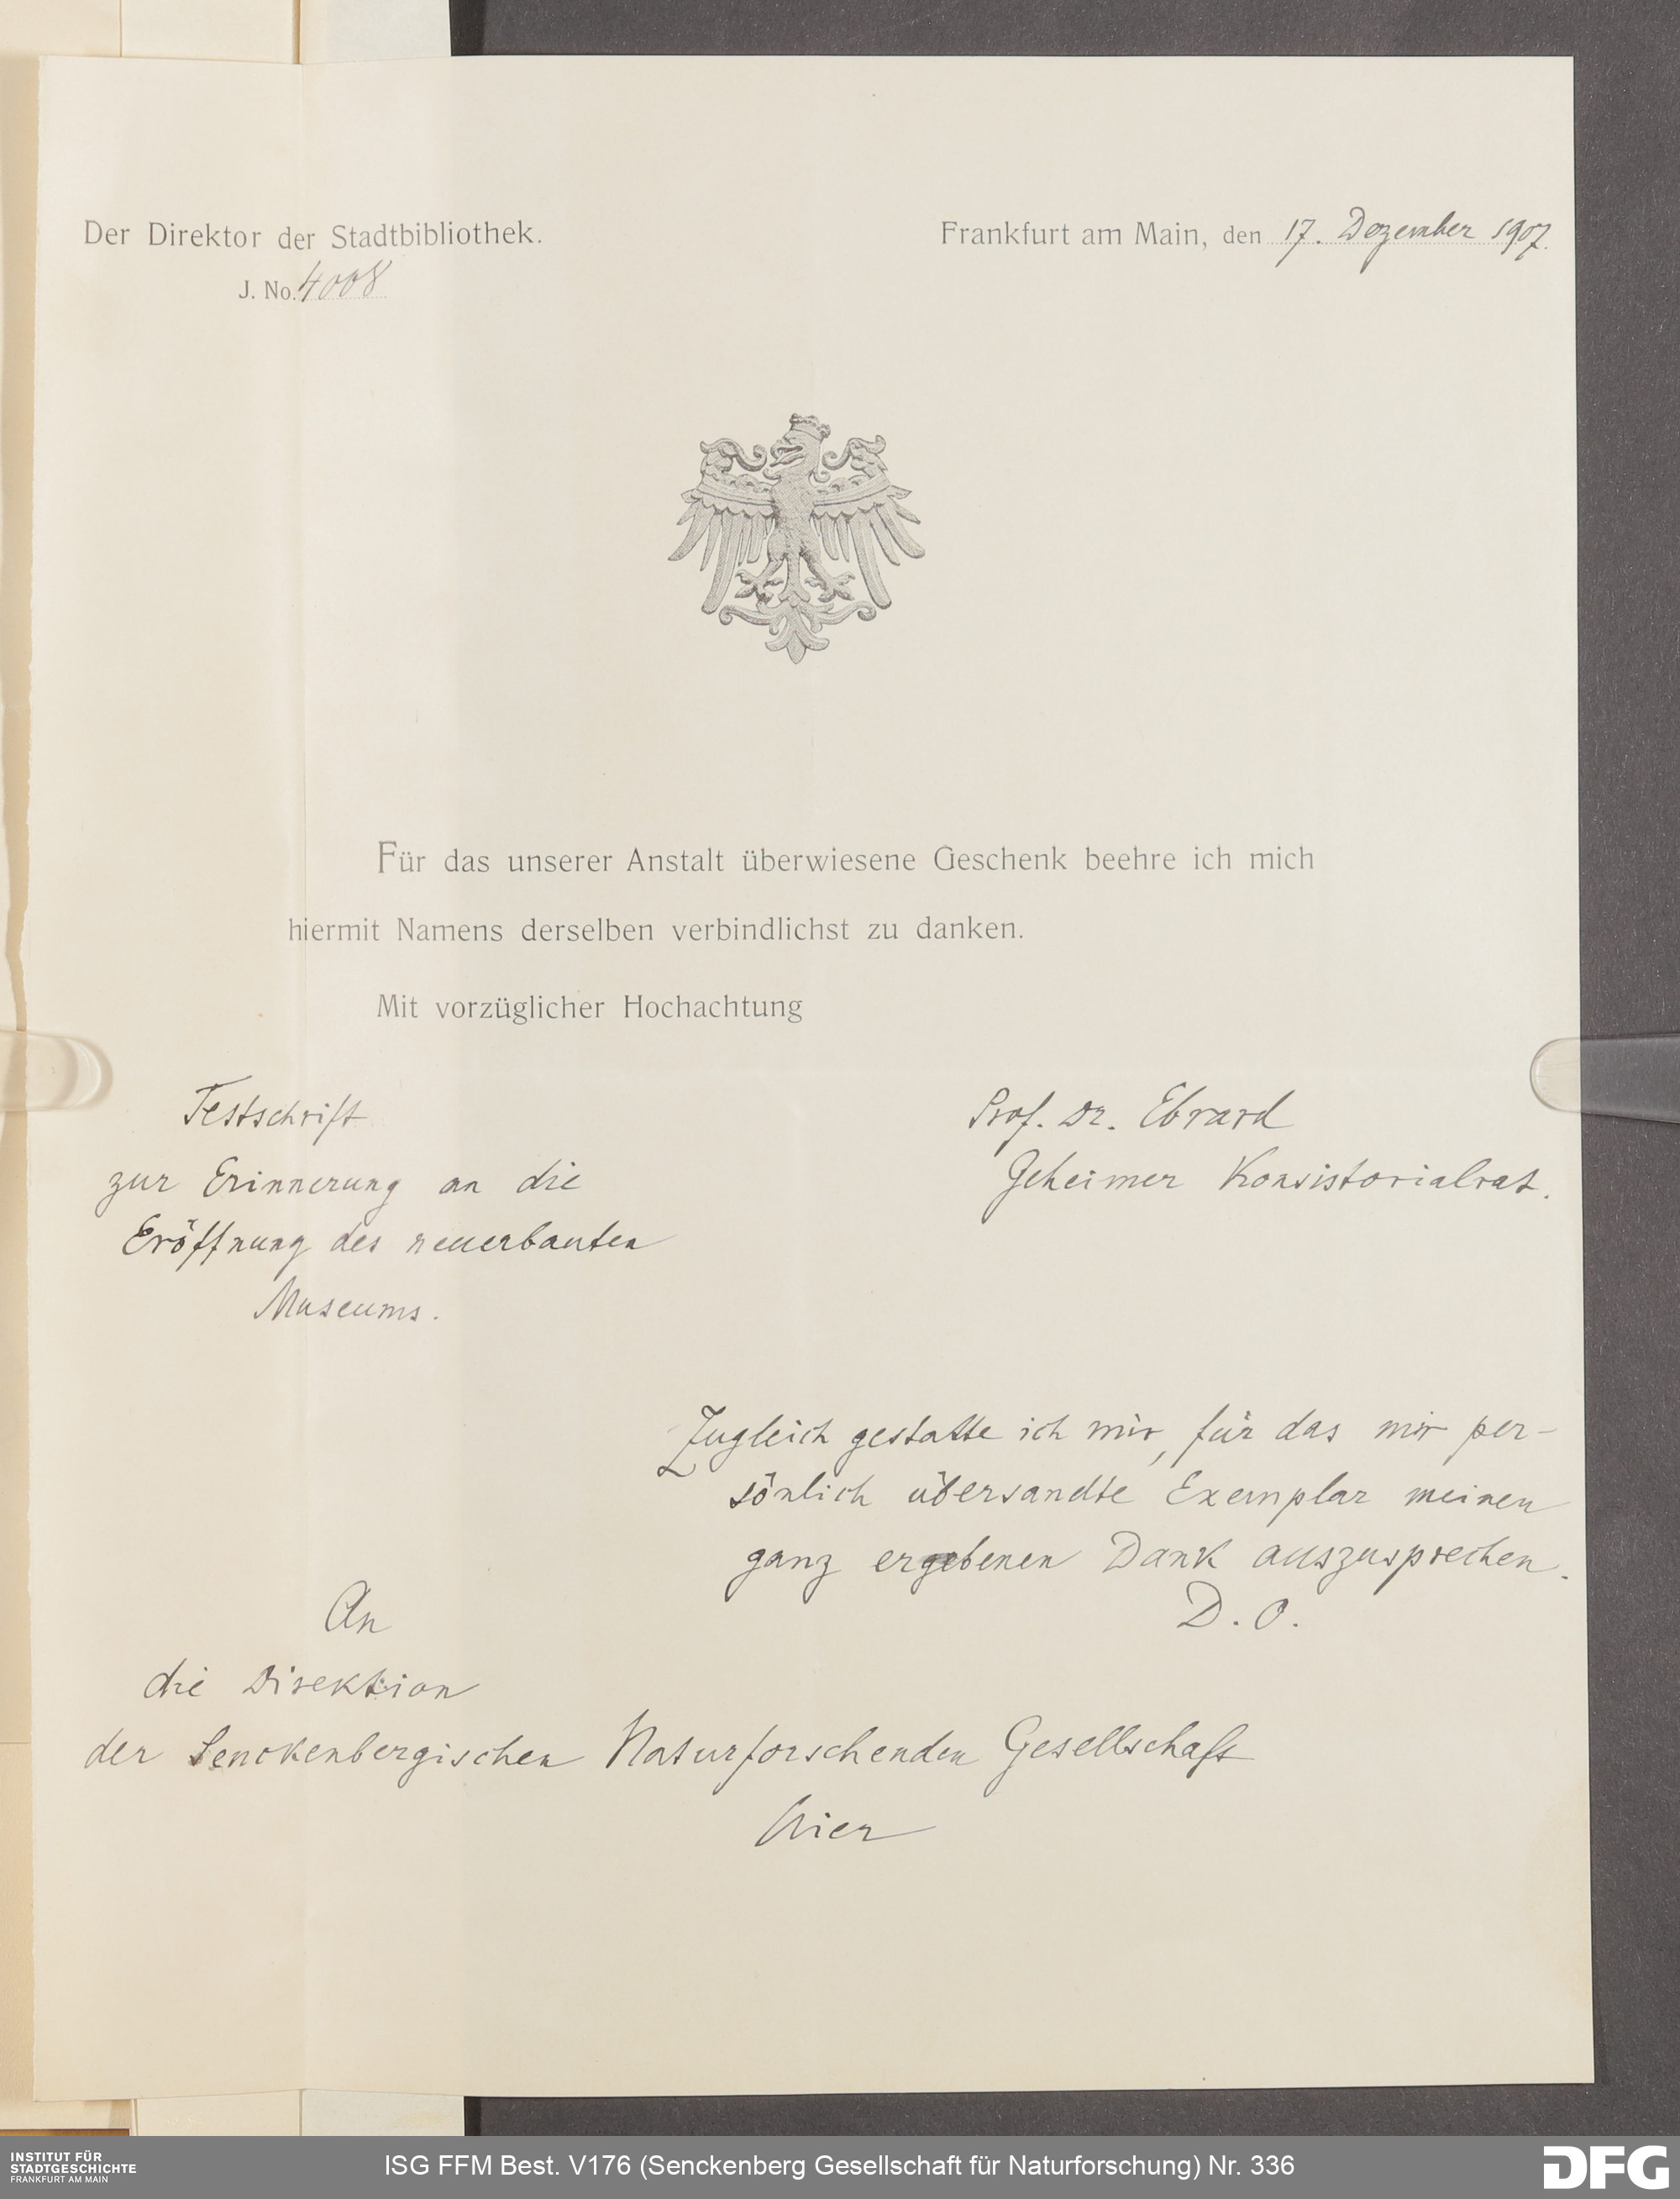 Der Direktor der Stadtbibliothek.
J. No. 4008
Frankfurt am Main, den 17. Dezember 1907.
Für das unserer Anstalt überwiesene Geschenk beehre ich mich
hiermit Namens derselben verbindlichst zu danken.
Mit vorzüglicher Hochachtung
Prof. Dr. Ebrard
Geheimer Konsistorialrat.
Festschrift
zur Erinnerung an die
Eröffnung des neuerbauten
Museums.
Zugleich gestatte ich mir, für das mir per-
sönlich übersandte Exemplar meinen
ganz ergebenen Dank auszusprechen.
D. O.
An
die Direktion
der Senckenbergischen Naturforschenden Gesellschaft
Hier
INSTITUT FÜR
STADTGESCHICHTE
FRANKFURT AM MAIN
ISG FFM Best. V176 (Senckenberg Gesellschaft für Naturforschung) Nr. 336
DFG